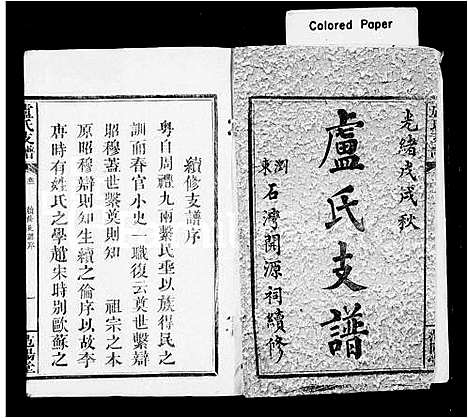 Colored Paper
光緒戊戌秋
盧氏支譜
瀏東
石灣開源祠續修
續修支譜序
粵自周禮九兩繫民垂以族得民之
訓而春官小史一職復云奠世繫辯
昭穆蓋世繫奠則知 祖宗之本
原昭穆辯則知生續之倫序以故李
唐時有姓氏之學趙宋時別歐蘇之
盧氏支譜